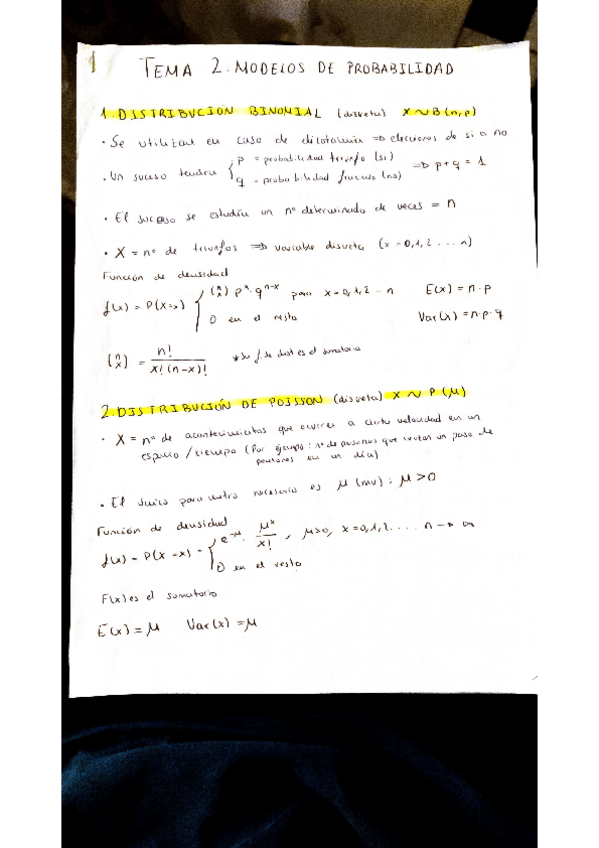 1
TEMA 2. MODELOS DE PROBABILIDAD
1. DISTRIBUCIÓN BINOMIAL (discreta) X ~ B(n,p)
· Se utilizan en caso de dicotomía => elecciones de si o no
· Un suceso tendra { p = probabilidad triunfo (si) => p+q = 1
q = probabilidad fracaso (no)
· El suceso se estudia un nº determinado de veces = n
· X = nº de triunfos => variable discreta (x = 0,1,2 ... n)
Función de densidad
f(x) = P(X=x) { (n x) p^x · q^n-x para x = 0,1,2 ... n E(x) = n·p
0 en el resto Var(x) = n·p·q
(n x) = n! / x!(n-x)! * Su f. de dist es el sumatorio
2. DISTRIBUCIÓN DE POISSON (discreta) X ~ P(μ)
· X = nº de acontecimientos que ocurren a cierta velocidad en un
espacio / tiempo (Por ejemplo: nº de personas que cruzan un paso de
peatones en un día)
· El único parametro necesario es μ (mu) : μ > 0
Función de densidad
f(x) = P(X=x) = { e^-μ · μ^x / x! , μ>0, x=0,1,2.... n → ∞
0 en el resto
F(x) es el sumatorio
E(x) = μ Var(x) = μ